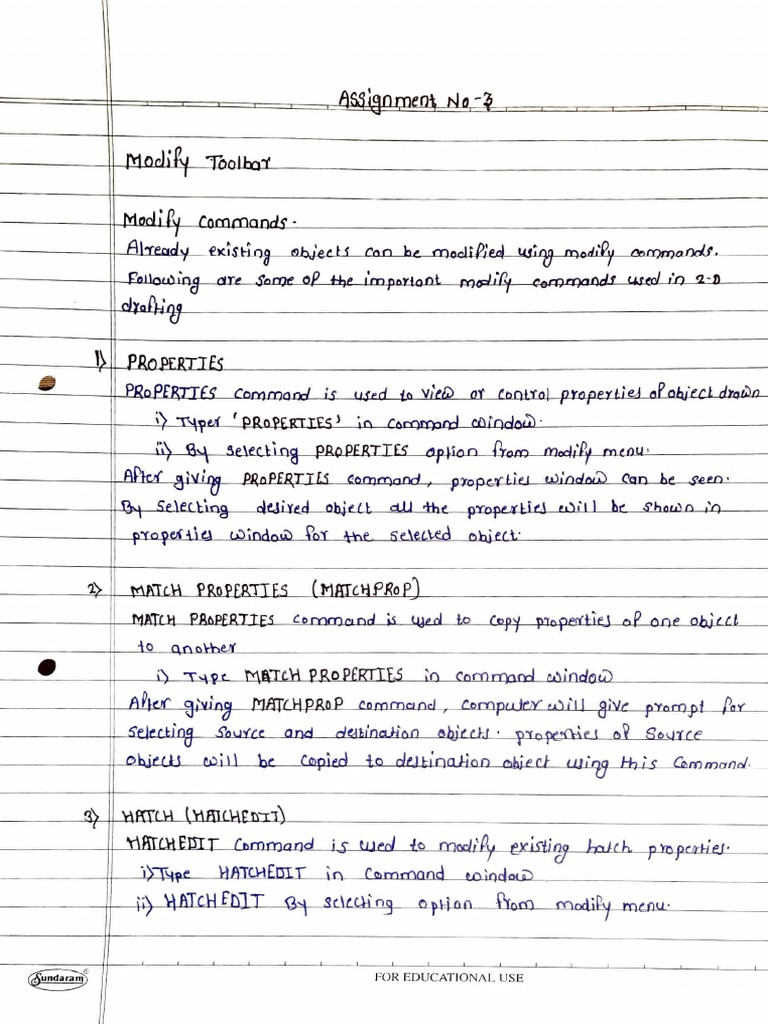 Assignment No-3
Modify Toolbar
Modify Commands.
Already existing objects can be modified using modify commands.
Following are some of the important modify commands used in 2-D
drafting
1) PROPERTIES
PROPERTIES command is used to view or control properties of object drawn
i) Typer 'PROPERTIES' in command window.
ii) By selecting PROPERTIES option from modify menu.
After giving PROPERTIES command, properties window can be seen.
By selecting desired object all the properties will be shown in
properties window for the selected object.
2) MATCH PROPERTIES (MATCHPROP)
MATCH PROPERTIES command is used to copy properties of one object
to another
i) Type MATCH PROPERTIES in command window
After giving MATCHPROP command, computer will give prompt for
selecting source and destination objects. properties of source
objects will be copied to destination object using this command.
3) HATCH (HATCHEDIT)
HATCHEDIT command is used to modify existing hatch properties.
i) Type HATCHEDIT in command window
ii) HATCHEDIT By selecting option from modify menu.
Sundaram®
FOR EDUCATIONAL USE